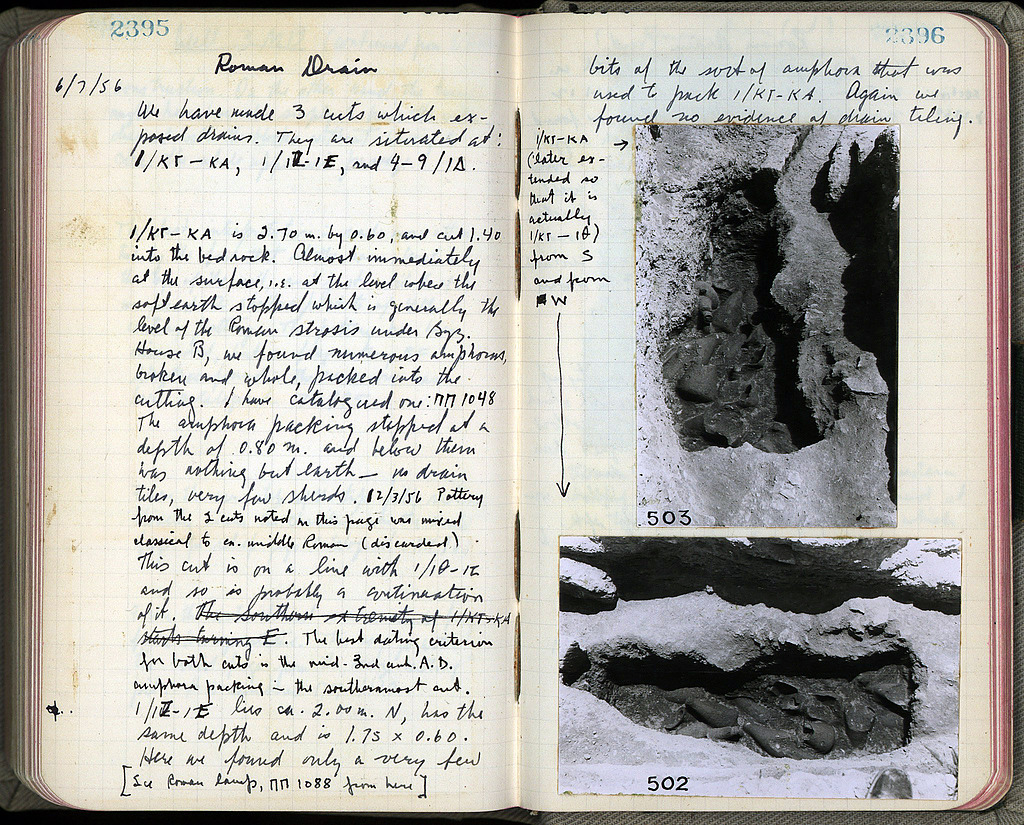 2395
Roman Drain
6/7/56
We have made 3 cuts which ex-
posed drains. They are situated at:
1/KΓ-KA, 1/IZ-IE, and 4-9/IΔ.
1/KΓ-KA is 2.70 m. by 0.60, and cut 1.40
into the bedrock. Almost immediately
at the surface, i.e. at the level where the
soft earth stopped which is generally the
level of the Roman strosis under Byz.
House B, we found numerous amphoras,
broken and whole, packed into the
cutting. I have catalogued one: ΠΠ 1048
The amphora packing stopped at a
depth of 0.80 m. and below them
was nothing but earth — no drain
tiles, very few sherds. 12/3/56 Pottery
from the 2 cuts noted on this page was mixed
classical to ca. middle Roman (discarded)
This cut is on a line with 1/IΘ-IZ
and so is probably a continuation
of it. The southern extremity of 1/KΓ-KA
starts turning E. The best dating criterion
for both cuts is the mid-3rd cent. A.D.
amphora packing in the southernmost cut.
1/IZ-IE lies ca. 2.00 m. N, has the
same depth and is 1.75 x 0.60.
Here we found only a very few
[See Roman lamp, ΠΠ 1088 from here]
2396
bits of the sort of amphora that was
used to pack 1/KΓ-KA. Again we
found no evidence of drain tiling.
1/KΓ-KA →
(later ex-
tended so
that it is
actually
1/KΓ-IΘ)
from S
and from
W
503
502